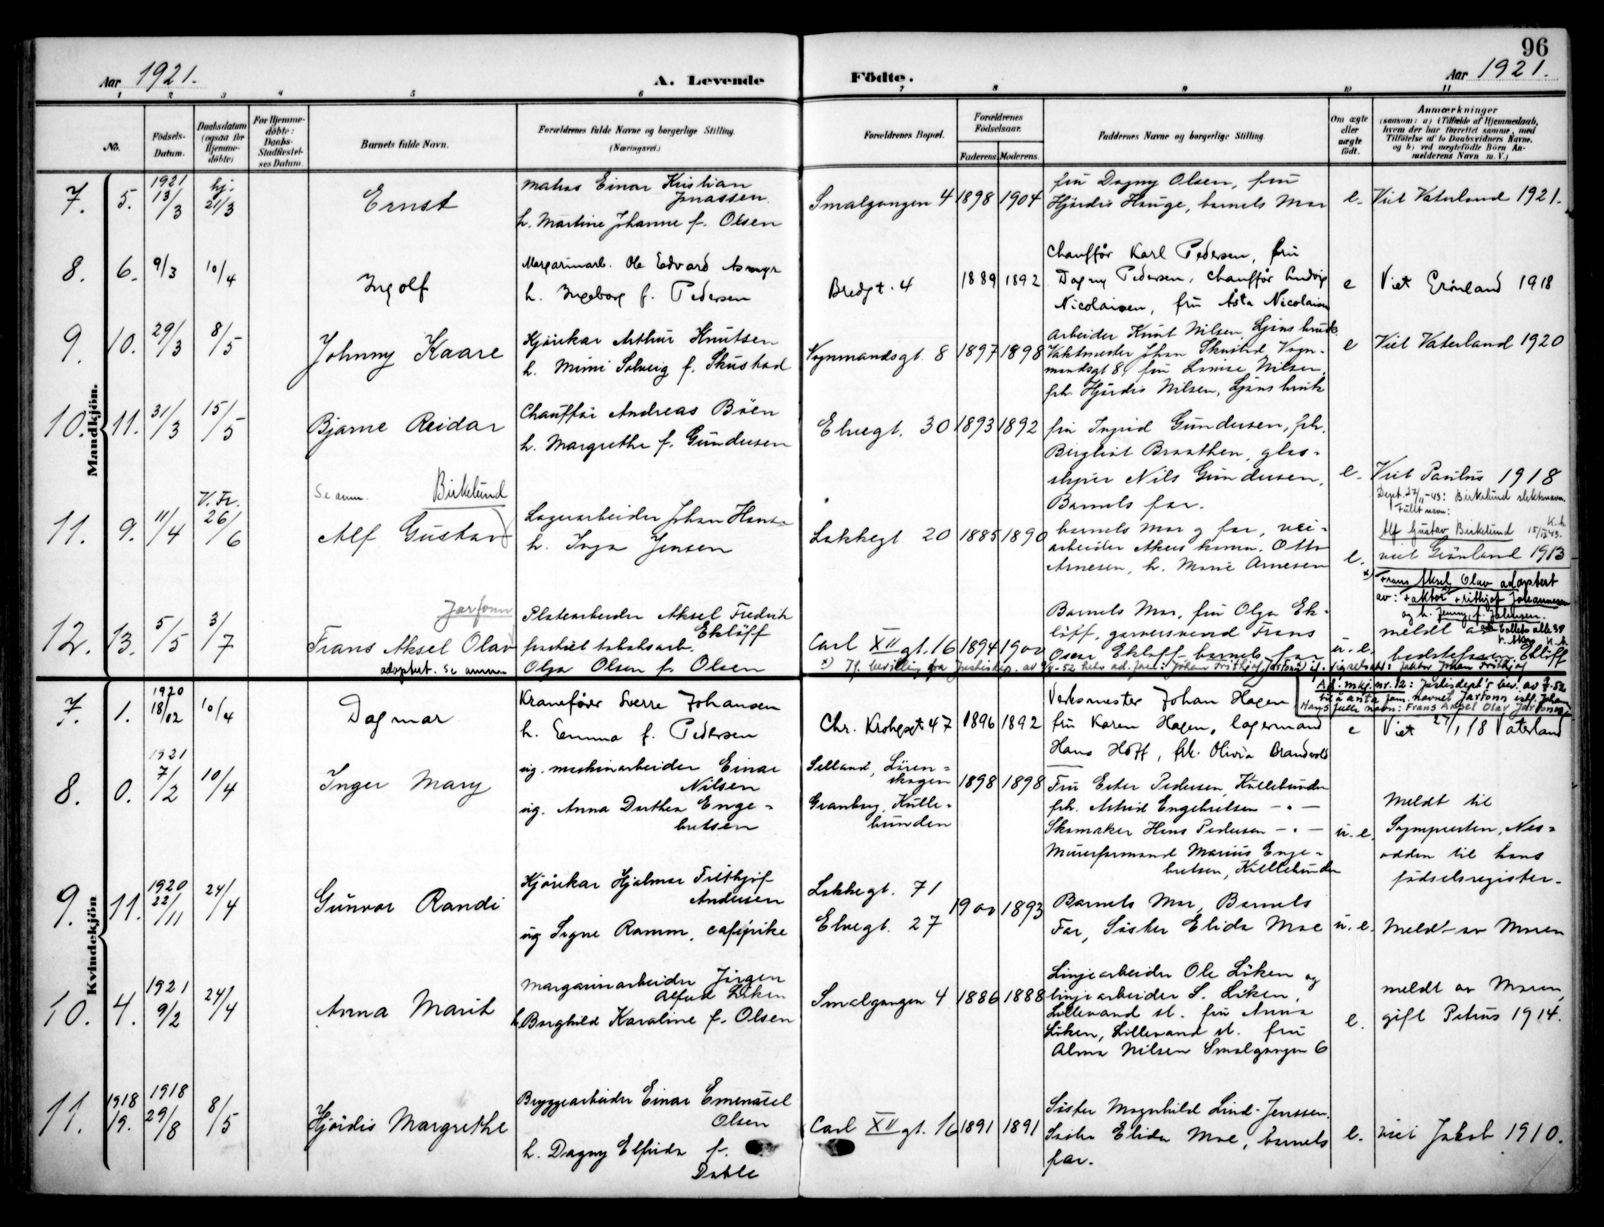 96
Aar 1921.
A. Levende Födte.
Aar 1921.
1 2 3 4 5 6 7 8 9 10 11
No.
Födsels-Datum.
Daabsdatum (ogsaa for Hjemme-döbte)
For Hjemme-döbte: Daabs-Stadfæstel-ses Datum.
Barnets fulde Navn.
Forældrenes fulde Navne og borgerlige Stilling.
(Næringsvei.)
Forældrenes Bopæl.
Forældrenes Fødselsaar.
Faderens. Moderens.
Faddernes Navne og borgerlige Stilling.
Om ægte eller uægte födt.
Anmærkninger
(saasom: a) i Tilfælde af Hjemmedaab, hvem der har forrettet samme, med Tilföielse af to Daabsvidners Navne, og b) ved uægtefödte Börn Anmelderens Navn m. V.)
Mandkjön.
7. 5. 1921 13/3 hj. 21/3 Ernst
Matros Einar Kristian
Jonassen
h. Martine Johanne f. Olsen
Smalgangen 4 1898 1904
fru Dagny Olsen, fru
Hjørdis Hauge, barnets Mor
e. Viet Vaterland 1921.
8. 6. 9/3 10/4 Ingolf
Margarinarb. Ole Edvard Asmyr
h. Ingeborg f. Pedersen
Bredgt. 4 1889 1892
Chauffør Karl Pedersen, fru
Dagny Pedersen, Chauffør Ludvig
Nicolaisen, fru Asta Nicolaisen
e Viet Grönland 1918
9. 10. 29/3 8/5 Johnny Kaare
Kjørekar Arthur Knutsen
h. Mimi Solveig f. Skustad
Vognmandsgt. 8 1897 1898
Arbeider Knut Nilsen, Ljans bruk
Vaktmester Johan Skustad Vogn-
mandsgt 8, fru Louise Nilsen,
frk. Hjørdis Nilsen, Ljans bruk
e Viet Vaterland 1920
10. 11. 31/3 15/5 Bjarne Reidar
Chauffør Andreas Böen
h. Margrethe f. Gundersen
Elvegt. 30 1893 1892
fru Ingrid Gundersen, frk.
Bergliot Braathen, glas-
sliper Nils Gundersen,
Barnets far.
e. Viet Paulus 1918
Se anm. Birkelund
11. 9. 11/4 V. Fr. 26/6 Alf Gustav
Lagerarbeider Johan Hansen
h. Inga Jensen
Lakkegt 20 1885 1890
barnets Mor og far, vei-
arbeider Akers komm. Otto
Arnesen, h. Marie Arnesen
e.
Dept. 27/11-43: Birkelund slektsnavn.
Fullt navn:
Alf Gustav Birkelund
viet Grönland 1913
Jarfonn
12. 13. 5/5 3/7 Frans Aksel Olav
adoptert. Se anm
Platearbeider Aksel Fredrik
Eklöff
fraskilt tobaksarb.
Olga Olsen f. Olsen
Carl XII gt. 16 1894 1900
Barnets Mor, fru Olga Ek-
löff, garversvend Frans
Oscar Ekloff barnets far
u. e.
x) Frans Aksel Olav adoptert
av: Faktor Frithjof Johannesen
og h. Jenny f. Johnsen.
meldt av
bedstefaren Eklöff
Adj. mkj. nr. 12: Justisdept's bev. av
til å anta fam. navnet Jarfonn istf.
Hans fulle navn: Frans Aksel Olav Jarfonn
Kvindekjön
7. 1. 1920 18/12 10/4 Dagmar
Kranefører Sverre Johansen
h. Emma f. Pedersen
Chr. Krohgsgt 47 1896 1892
Verksmester Johan Hagen
fru Karen Hagen, lagermand
Hans Hoff, frk. Olivia Brandvold
e Viet 27/1 18 Vaterland
8. 0. 1921 7/2 10/4 Inger Mary
ug. maskinarbeider Einar
Nilsen
ug. Anna Dorthea Enge-
bretsen
Selland, Lören-
skogen
Granberg, Kulle-
bunden
1898 1898
Fru Ester Pedersen, Kullebunden
frk. Astrid Engebretsen — " —
Skomaker Hans Pedersen — " —
Murerformand Marius Enge-
bretsen, Kullebunden
u. e.
Meldt til
Sognepresten, Nes-
odden til hans
födselsregister.
9. 11. 1920 22/11 24/4 Gunvor Randi
Kjørekar Hjalmar Frithjof
Andersen
ug Signe Ramm, cafépike
Lakkegt. 71
Elvegt. 27
1900 1893
Barnets Mor, Barnets
Far, Søster Elida Moe
u. e. Meldt av Moren
10. 4. 1921 9/2 24/4 Anna Marit
Margarinarbeider Jörgen
Alfred Löken
h. Borghild Karoline f. Olsen
Smalgangen 4 1886 1888
Linjearbeider Ole Löken og
linjearbeider S. Löken,
Lillesand st. fru Anna
Löken, Lillesand st. fru
Alma Nilsen Smalgangen 6
e.
meldt av Moren,
gift Petrus 1914.
11. 1918 19. 1918 29/8 8/5 Hjördis Margrethe
Bryggearbeider Einar Emanuel
Olsen
h. Dagny Elfrida f.
Dahle
Carl XII gt. 16 1891 1891
Søster Magnhild Lind-Jenssen.
Søster Elida Moe, barnets
far.
e. viet Jakob 1910.